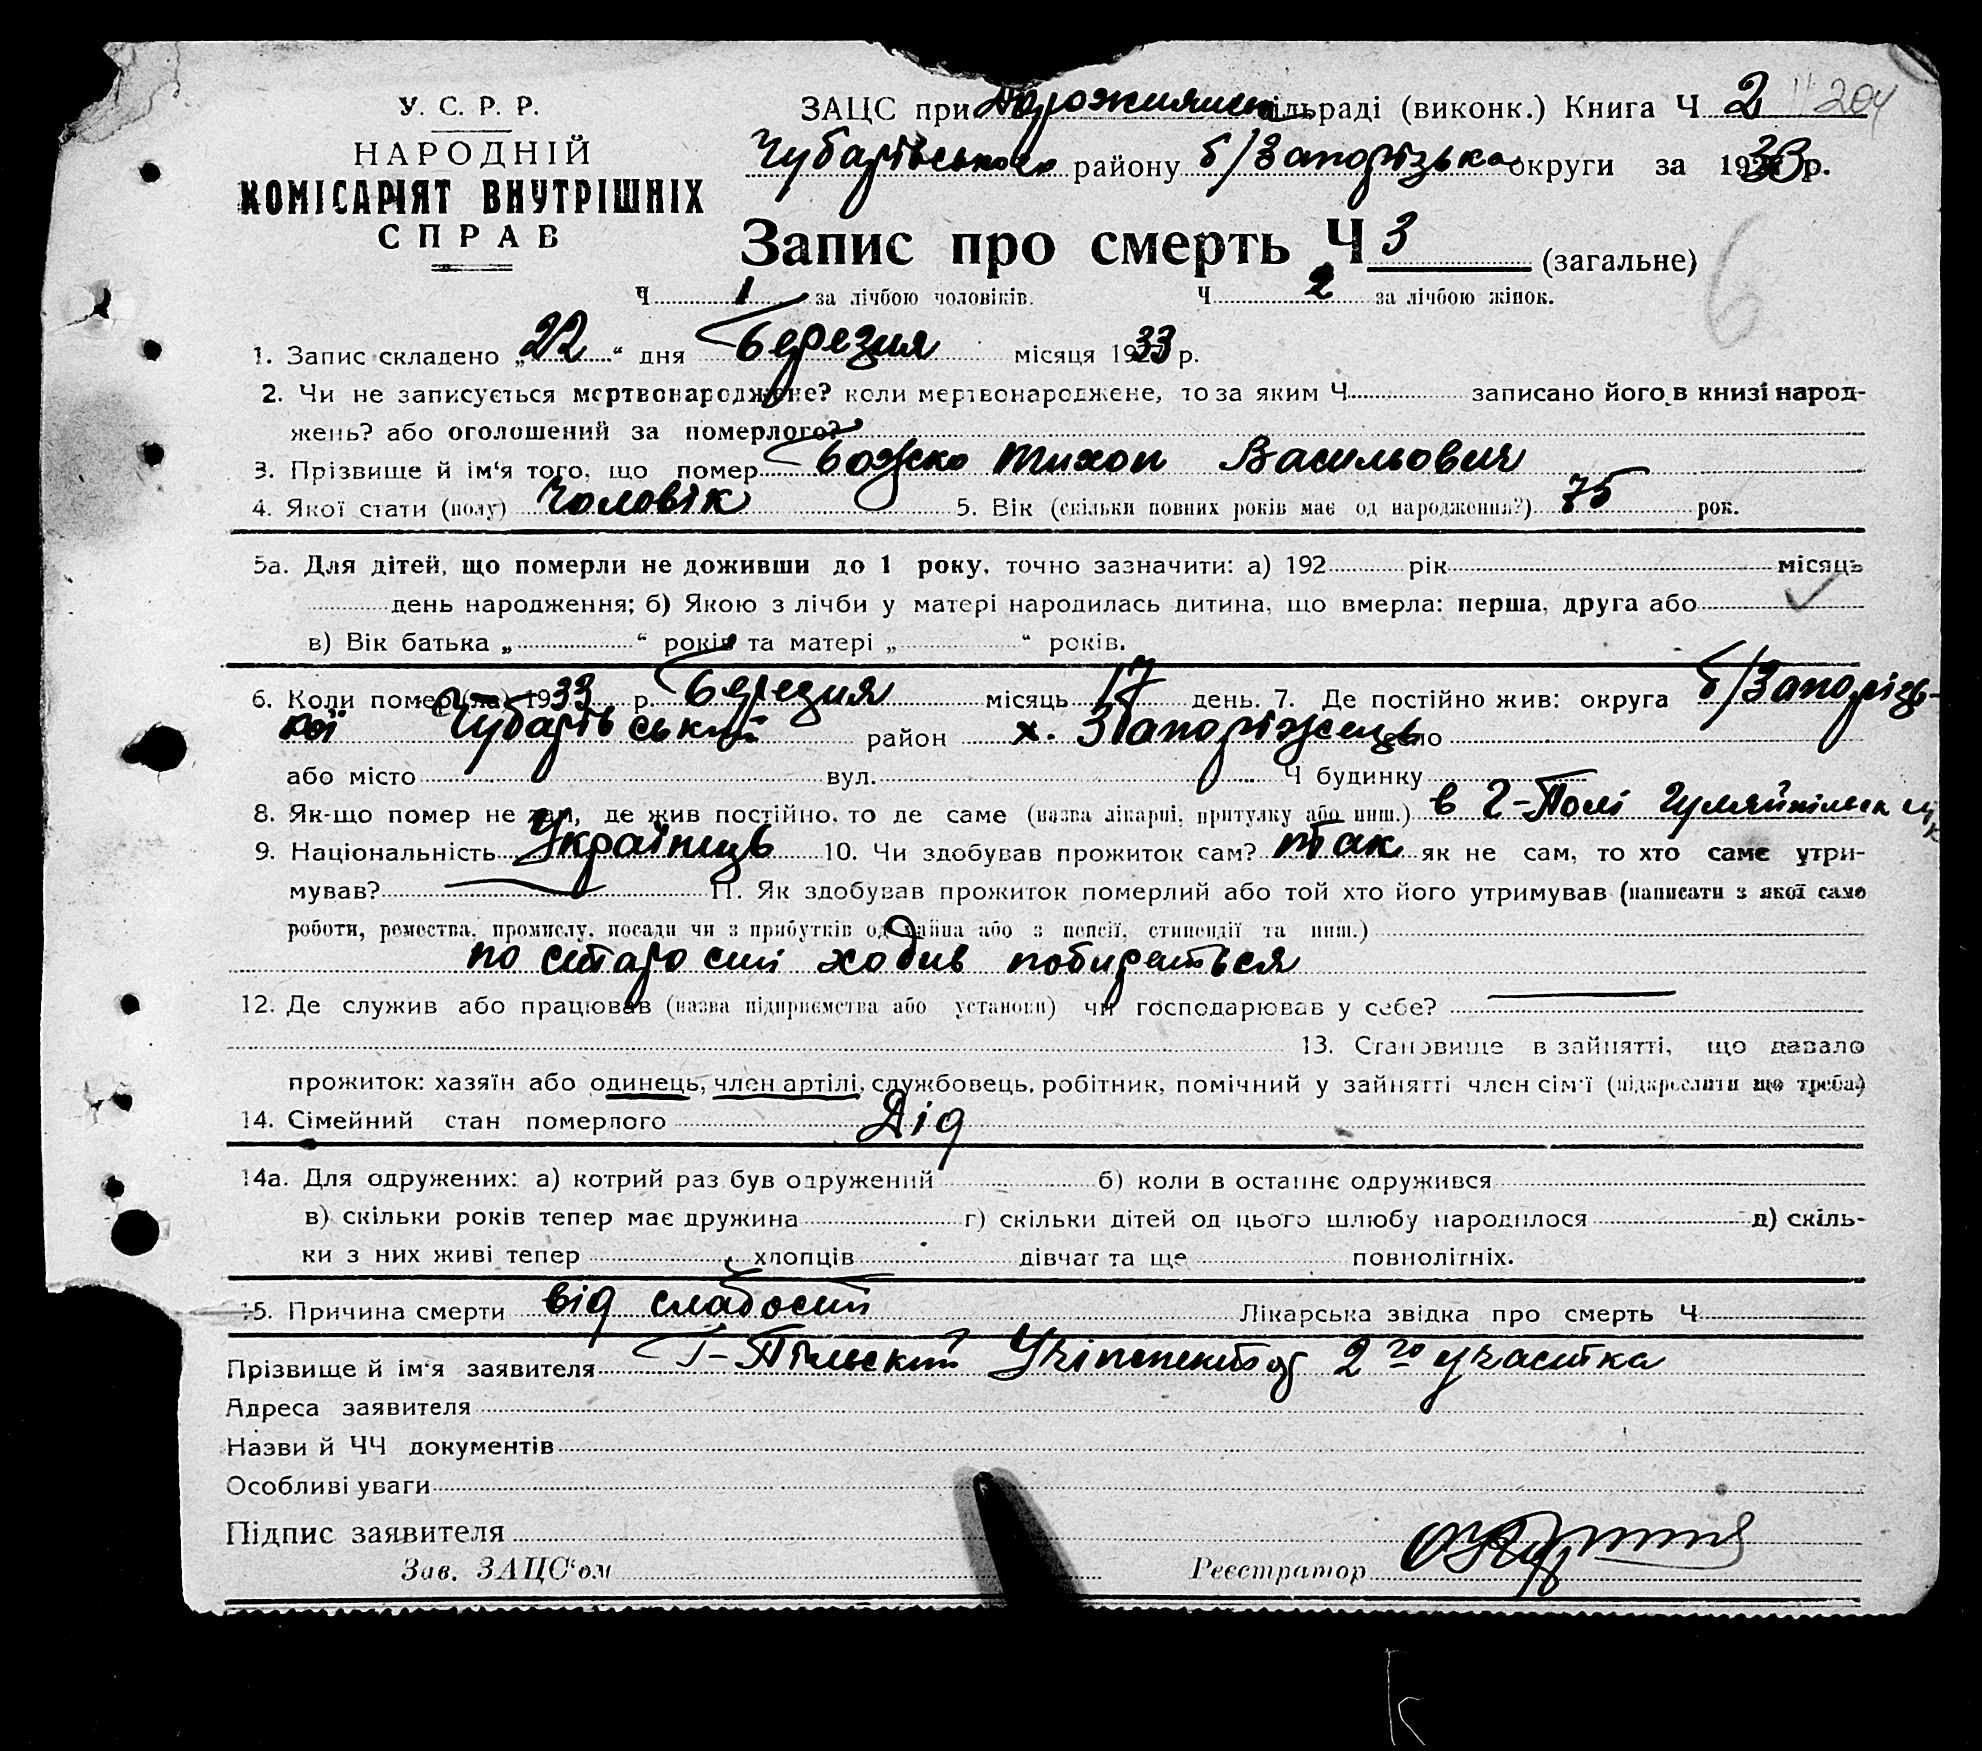 У. С. Р. Р.
НАРОДНІЙ
КОМІСАРІЯТ ВНУТРІШНІХ
СПРАВ
ЗАЦС при сільраді (виконк.) Книга Ч 2 204
Чубарівського району б/Запорізька округи за 1933 р.
Запис про смерть Ч 3 (загальне)
Ч 1 за лічбою чоловіків. Ч 2 за лічбою жінок.
6
1. Запис складено „22“ дня Березня місяця 1933 р.
2. Чи не записується мертвонароджене? коли мертвонароджене, то за яким Ч записано його в книзі народ-
жень? або оголошений за померлого?
3. Прізвище й ім‘я того, що помер Божко Тихон Васильович
4. Якої стати (полу) Чоловік 5. Вік (скільки повних років має од народження?) 75 рок.
5а. Для дітей, що померли не доживши до 1 року, точно зазначити: а) 192 рік місяць
день народження; б) Якою з лічби у матері народилась дитина, що вмерла: перша, друга або
в) Вік батька „ “ років та матері „ “ років.
6. Коли помер(ла) 1933 р. Березня місяць 17 день. 7. Де постійно жив: округа б/Запорізь-
кої Чубарівський район х. Запоріжець село
або місто вул. Ч будинку
8. Як-що помер не там, де жив постійно, то де саме (назва лікарні, притулку або инш.) в Г-Полі
9. Національність Українець 10. Чи здобував прожиток сам? так як не сам, то хто саме утри-
мував? 11. Як здобував прожиток померлий або той хто його утримував (написати з якої само
роботи, ремества, промислу, посади чи з прибутків од майна або з пенсії, стипендії та инш.)
по старости ходив побираться
12. Де служив або працював (назва підприємства або установи) чи господарював у себе?
13. Становище в зайнятті, що давало
прожиток: хазяїн або одинець, член артілі, службовець, робітник, помічний у зайнятті член сім‘ї (підкреслити що треба)
14. Сімейний стан померлого Дід
14а. Для одружених: а) котрий раз був одружений б) коли в останнє одружився
в) скільки років тепер має дружина г) скільки дітей од цього шлюбу народилося д) скіль-
ки з них живі тепер хлопців дівчат та ще повнолітніх.
15. Причина смерти від слабости Лікарська звідка про смерть Ч
Прізвище й ім‘я заявителя Г-Пільский 2го участка
Адреса заявителя
Назви й ЧЧ документів
Особливі уваги
Підпис заявителя
Зав. ЗАЦС‘ом Реєстратор